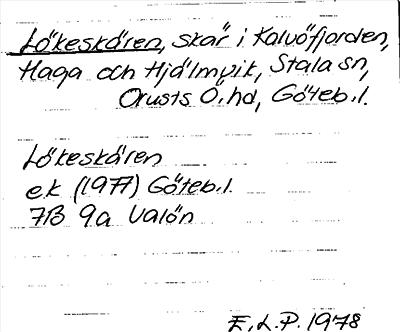 Lökeskären, skär i Kalvöfjorden,
Haga och Hjälmvik, Stala sn,
Orusts Ö. hd, Göteb. l.
Lökeskären
ek (1977) Göteb. l.
7B 9a Valön
E. L. P. 1978